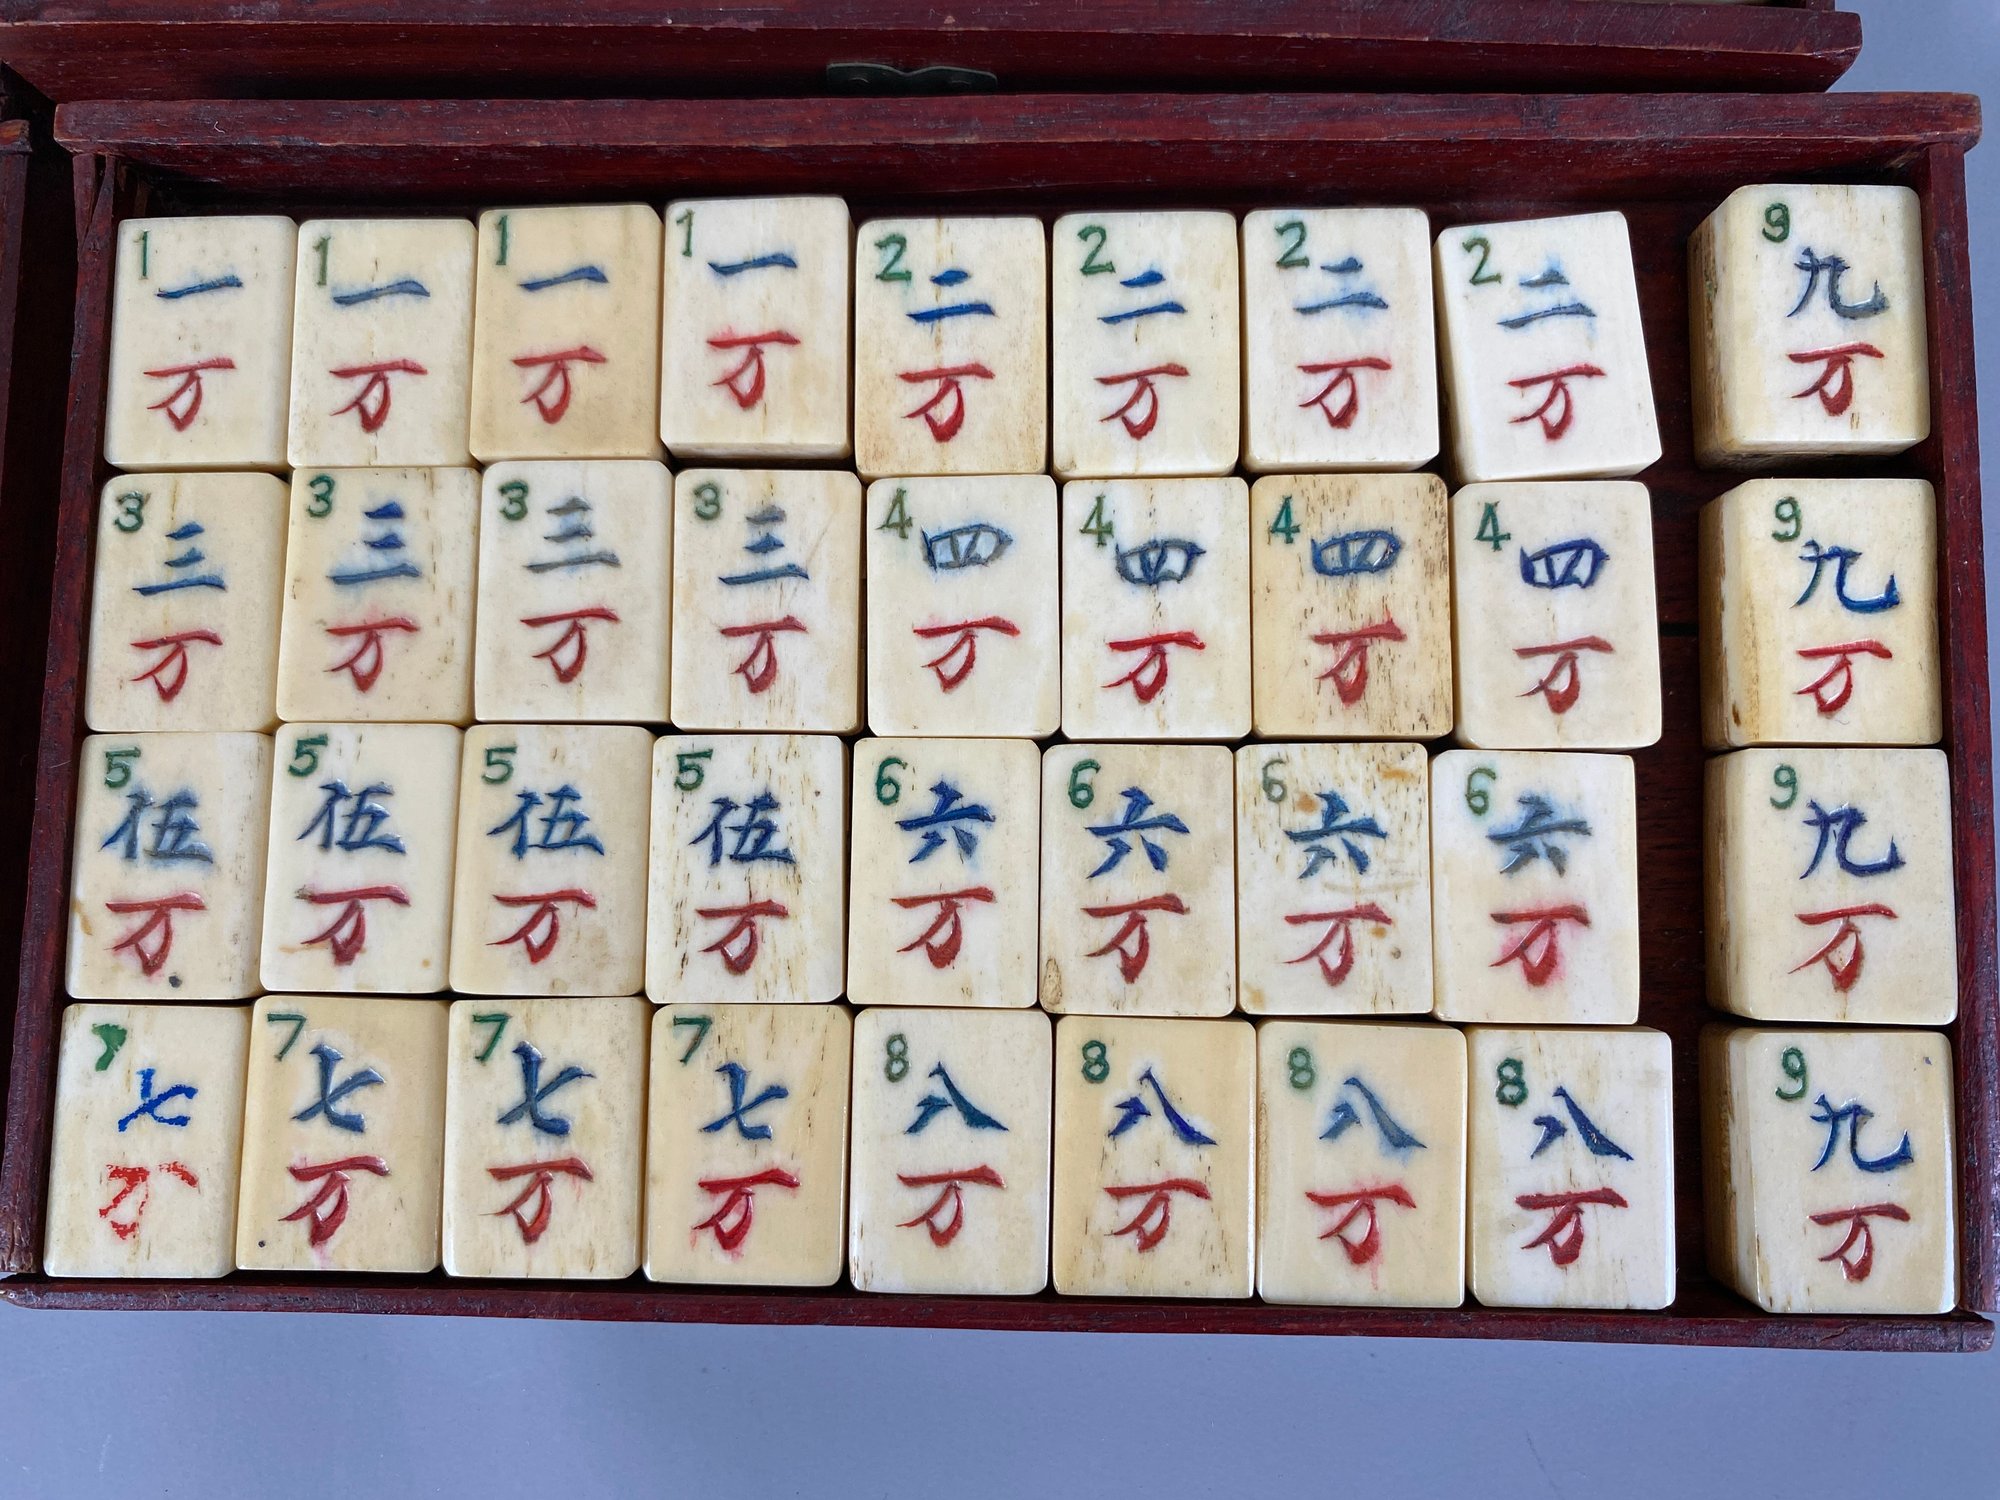 1 1 1 1 2 2 2 2 9
一 一 一 一 二 二 二 二 九
万 万 万 万 万 万 万 万 万
3 3 3 3 4 4 4 4 9
三 三 三 三 四 四 四 四 九
万 万 万 万 万 万 万 万 万
5 5 5 5 6 6 6 6 9
伍 伍 伍 伍 六 六 六 六 九
万 万 万 万 万 万 万 万 万
7 7 7 7 8 8 8 8 9
七 七 七 七 八 八 八 八 九
万 万 万 万 万 万 万 万 万